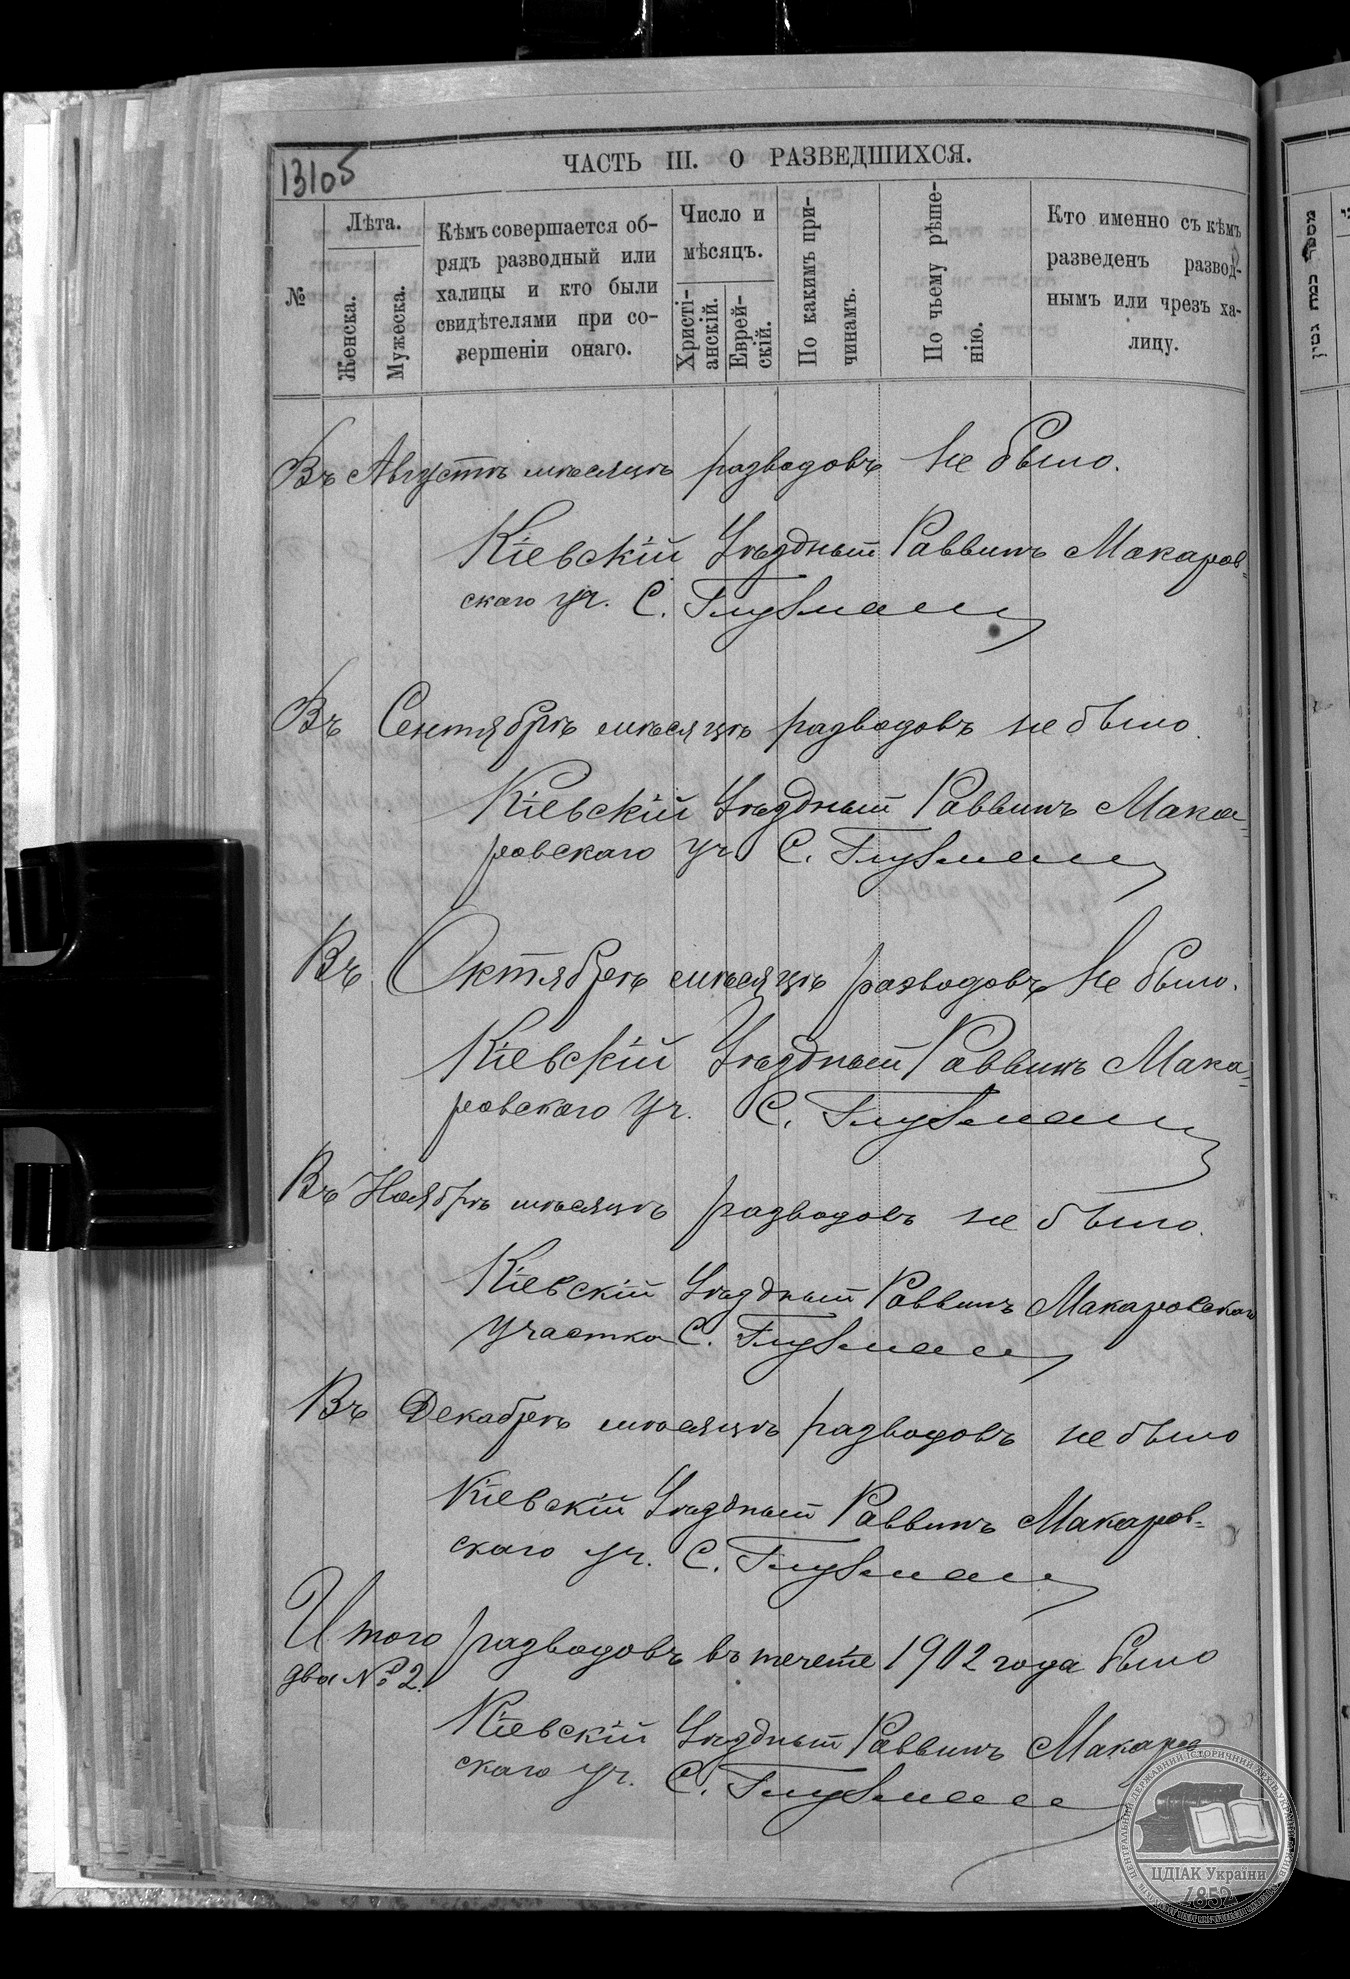 13105
ЧАСТЬ III. О РАЗВЕДШИХСЯ.
№
Лѣта.
Женска.
Мужеска.
Кѣмъ совершается об-
рядъ разводный или
халицы и кто были
свидѣтелями при со-
вершеніи онаго.
Число и
мѣсяцъ.
Христі-
анскій.
Еврей-
скій.
По какимъ при-
чинамъ.
По чьему рѣше-
нію.
Кто именно съ кѣмъ
разведенъ развод-
нымъ или чрезъ ха-
лицу.
Въ Августѣ мѣсяцѣ разводовъ не было.
Кіевскій Уѣздный Раввинъ Макаров=
скаго уч. С. Глузман
Въ Сентябрѣ мѣсяцѣ разводовъ не было.
Кіевскій Уѣздный Раввинъ Мака=
ровскаго уч. С. Глузман
Въ Октябрѣ мѣсяцѣ разводовъ не было.
Кіевскій Уѣздный Раввинъ Мака=
ровскаго уч. С. Глузман
Въ Ноябрѣ мѣсяцѣ разводовъ не было.
Кіевскій Уѣздный Раввинъ Макаровскаго
участка С. Глузман
Въ Декабрѣ мѣсяцѣ разводовъ не было
Кіевскій Уѣздный Раввинъ Макаров=
скаго уч. С. Глузман
Итого разводовъ въ течете 1902 года было
два № 2.
Кіевскій Уѣздный Раввинъ Макаров
скаго уч. С. Глузман
מספר כמה גטין
ЦЕНТРАЛЬНИЙ ДЕРЖАВНИЙ ІСТОРИЧНИЙ АРХІВ УКРАЇНИ
ЦДІАК України
1852